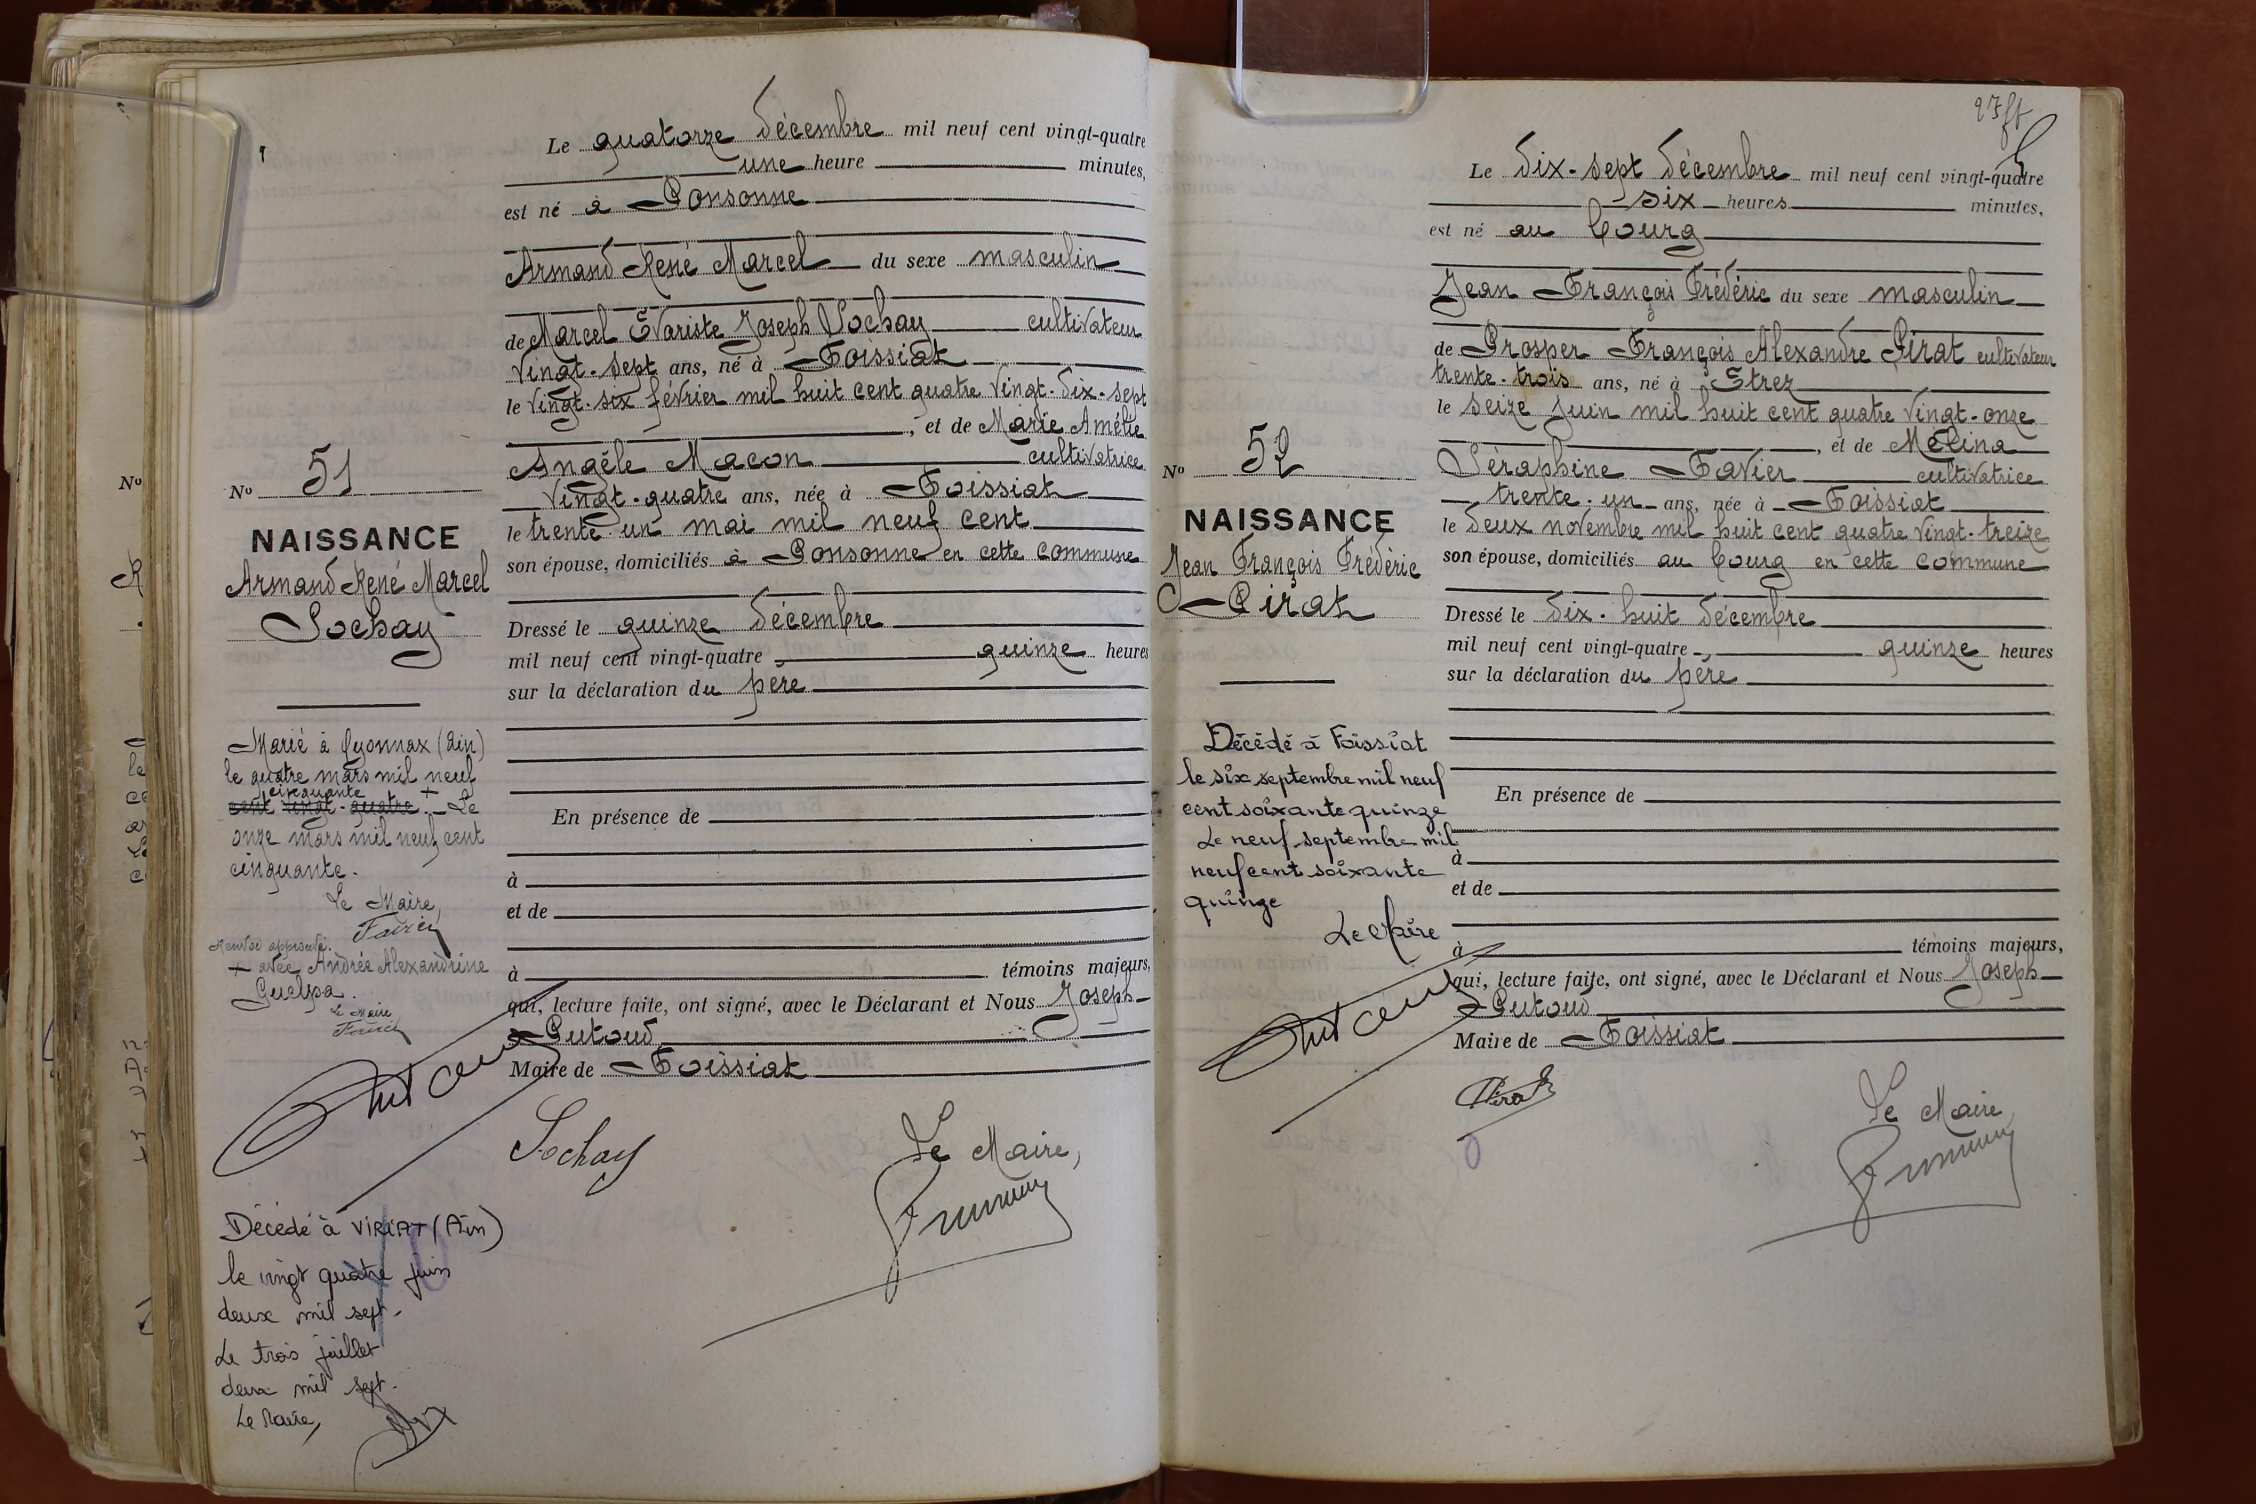 Le quatorze décembre mil neuf cent vingt-quatre
une heure minutes,
est né à Ponsonne
Armand René Marcel du sexe masculin
de Marcel Evariste Joseph Sochay cultivateur
vingt-sept ans, né à Foissiat
le vingt-six février mil huit cent quatre vingt-dix-sept
, et de Marie Amélie
Angèle Macon cultivatrice
vingt-quatre ans, née à Foissiat
le trente-un mai mil neuf cent
son épouse, domiciliés à Ponsonne en cette commune
Dressé le quinze décembre
mil neuf cent vingt-quatre, quinze heures
sur la déclaration du père
En présence de
à
et de
à témoins majeurs,
qui, lecture faite, ont signé, avec le Déclarant et Nous Joseph
Putoud
Maire de Foissiat
Sochay
Le Maire,
No 51
NAISSANCE
Armand René Marcel
Sochay
Marié à Oyonnax (Ain)
le quatre mars mil neuf
cinquante +
cent vingt-quatre. Le
onze mars mil neuf cent
cinquante.
Le Maire,
Renvoi approuvé.
+ avec Andrée Alexandrine
Guelpa.
Le Maire
Décédé à VIRIAT (Ain)
le vingt quatre juin
deux mil sept.
Le trois juillet
deux mil sept.
Le Maire,
No
27
Le dix-sept décembre mil neuf cent vingt-quatre
six heures minutes,
est né au bourg
Jean François Frédéric du sexe masculin
de Prosper François Alexandre Pirat cultivateur
trente-trois ans, né à Etrez
le seize juin mil huit cent quatre vingt-onze
, et de Mélina
Séraphine Favier cultivatrice
trente-un ans, née à Foissiat
le deux novembre mil huit cent quatre vingt-treize
son épouse, domiciliés au bourg en cette commune
Dressé le dix-huit décembre
mil neuf cent vingt-quatre, quinze heures
sur la déclaration du père
En présence de
à
et de
à témoins majeurs,
qui, lecture faite, ont signé, avec le Déclarant et Nous Joseph
Putoud
Maire de Foissiat
Pirat
Le Maire
No 52
NAISSANCE
Jean François Frédéric
Pirat
Décédé à Foissiat
le six septembre mil neuf
cent soixante quinze
Le neuf septembre mil
neuf cent soixante
quinze
Le Maire